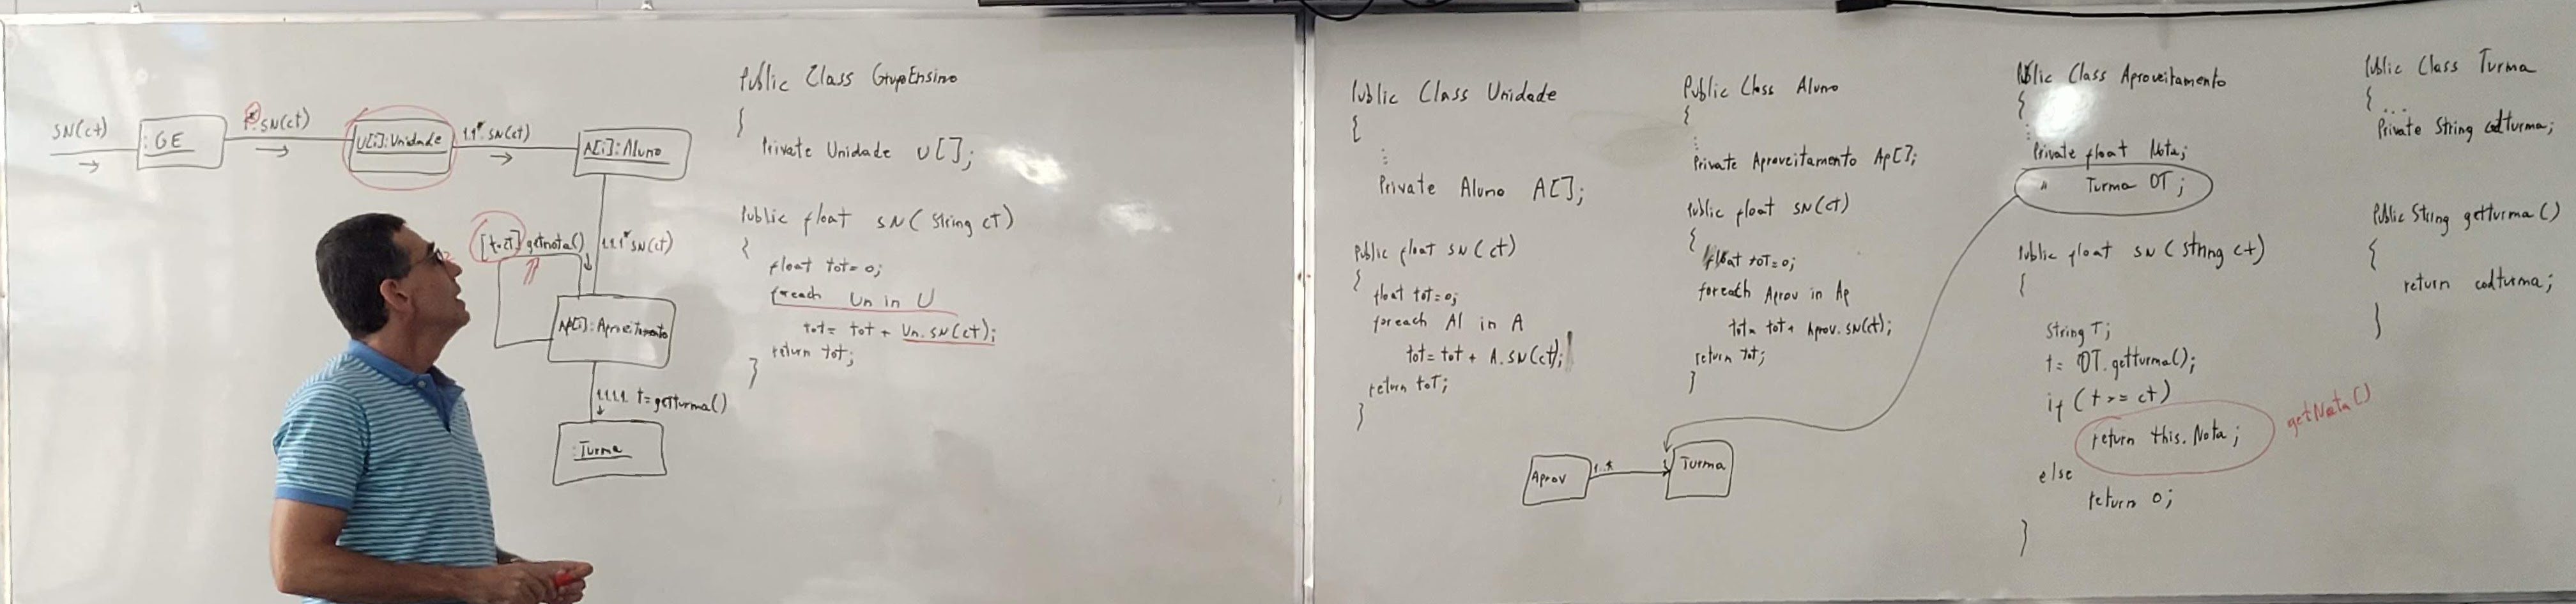 SN(ct)
:GE
1*.SN(ct)
U[i]:Unidade
1.1*.SN(ct)
A[i]:Aluno
[t=ct] getnota()
1.1.1* SN(ct)
Ap[i]:Aproveitamento
1.1.1.1. t=getturma()
:Turma
Public Class GrupoEnsino
{
Private Unidade U[];
Public float SN( String cT)
{
float tot=0;
foreach Un in U
tot= tot + Un.SN(ct);
return tot;
}
Public Class Unidade
{
⋮
Private Aluno A[];
Public float SN(ct)
{
float tot=0;
foreach Al in A
tot= tot + A.SN(ct);
return toT;
}
Public Class Aluno
{
⋮
Private Aproveitamento Ap[];
Public float SN(ct)
{
float toT=0;
foreach Aprov in Ap
tot= tot+ Aprov.SN(ct);
return tot;
}
Aprov
1..*
1
Turma
Public Class Aproveitamento
{
⋮
Private float Nota;
" Turma OT;
Public float SN (string ct)
{
String T;
t= OT.getturma();
if (t == ct)
return this.Nota;
getNota()
else
return 0;
}
Public Class Turma
{
...
Private String codturma;
Public String getturma()
{
return codturma;
}